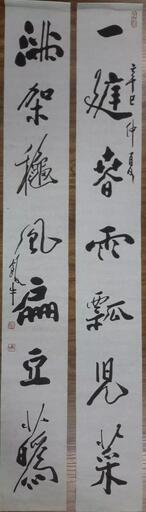 一庭春雨瓢兒菜
辛巳仲夏
滿架穐風扁豆蘤